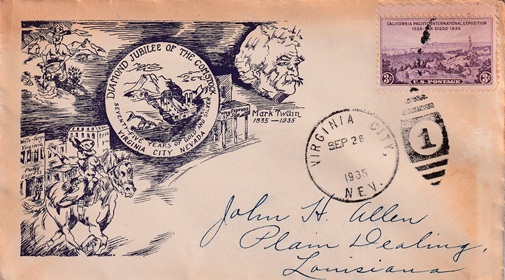 DIAMOND JUBILEE OF THE COMSTOCK
SEVENTY-FIVE YEARS OF
VIRGINIA CITY NEVADA
Mark Twain
1835-1935
CALIFORNIA PACIFIC INTERNATIONAL EXPOSITION
1935-SAN DIEGO-1936
3¢ 3¢
U.S. POSTAGE
VIRGINIA CITY,
SEP 26
1935
NEV.
1
John H. Allen
Plain Dealing,
Louisiana